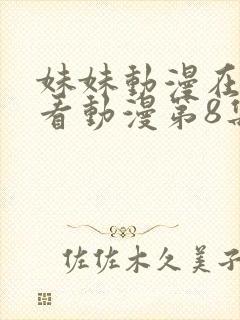 妹妹動漫在
看動漫第8集
佐佐木久美子